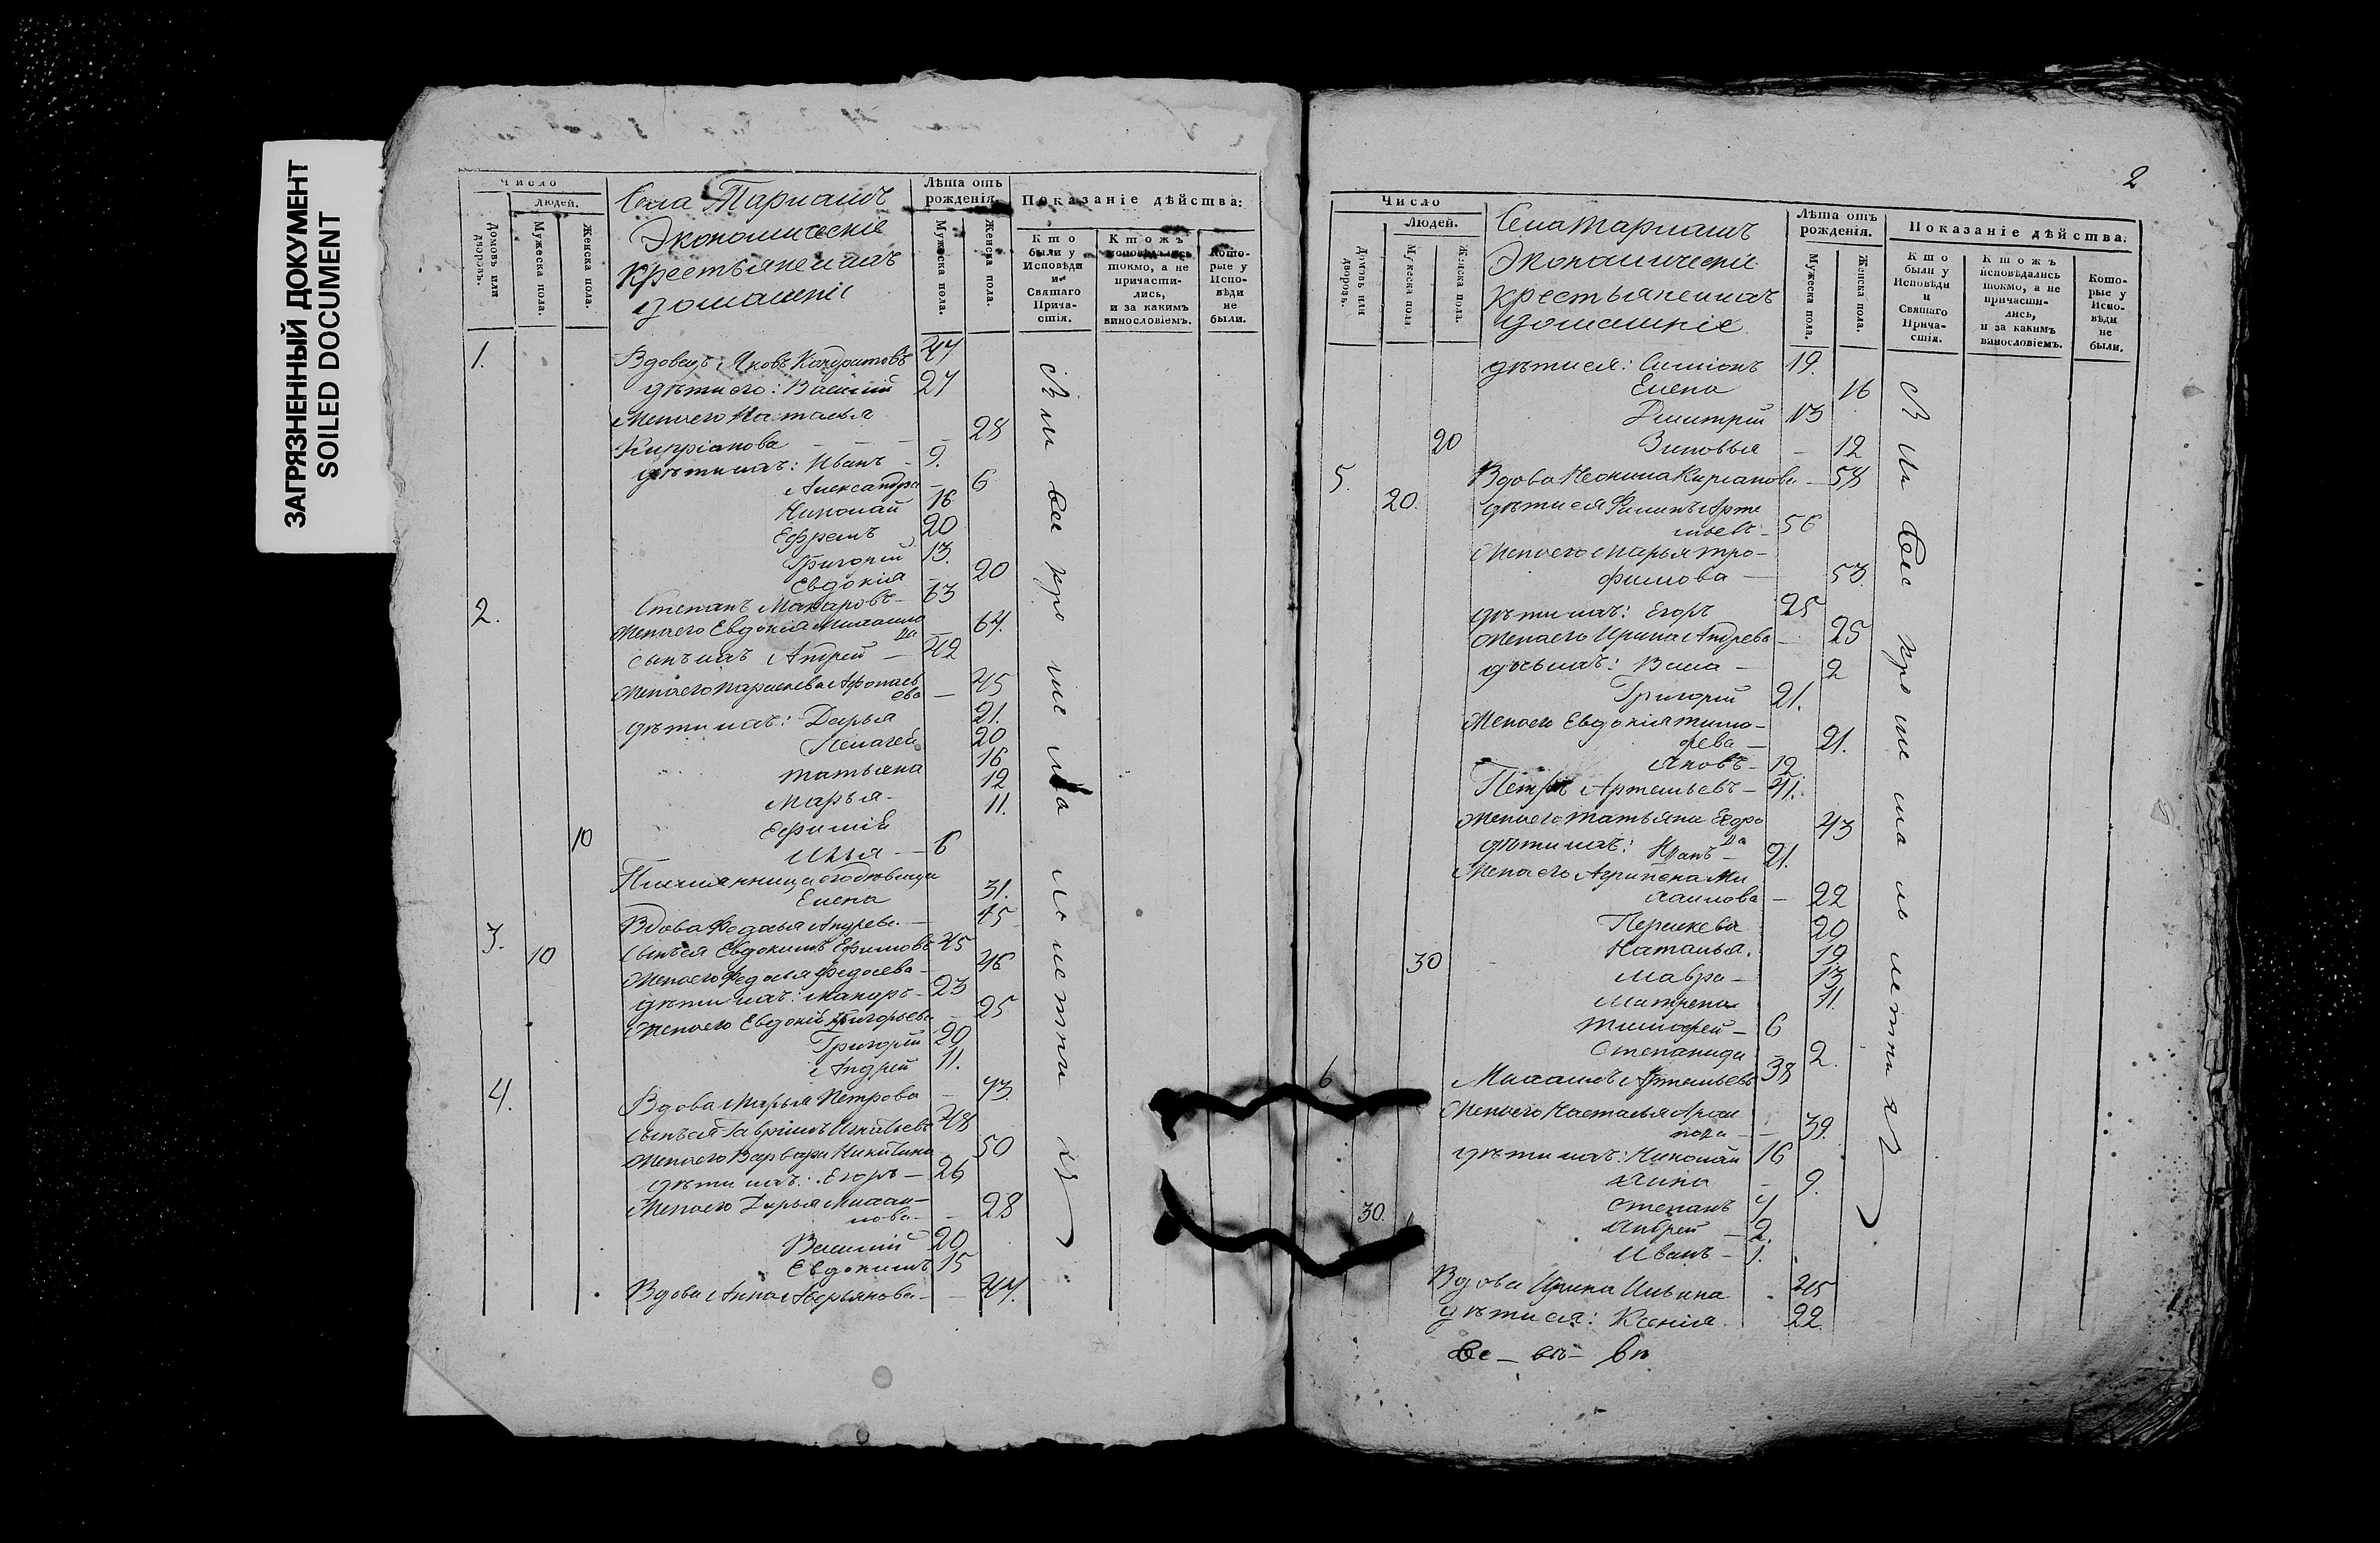 ЗАГРЯЗНЕННЫЙ ДОКУМЕНТ
SOILED DOCUMENT
Число
Людей.
Домовъ или дворовъ.
Мужеска пола.
Женска пола.
Села Тарнашъ
Экономическіе
крестьяне и ихъ
домашніе
Лѣта отъ рожденія.
Мужеска пола.
Женска пола.
Показаніе дѣйства:
Кто были у Исповѣди и Святаго Прича-стія.
Ктожъ исповѣдались токмо, а не причасти-лись, и за какимъ винословіемъ.
Кото-рые у Испо-вѣди не были.
1. Вдовецъ Яковъ Кондратовъ 47
дѣти его: Василій 27
Жена его Наталья
Кипріанова 28
дѣти ихъ: Иванъ 9.
Александра 6
Николай 16
Ефремъ 20
Григорій 13.
Евдокія 20
2. Степанъ Макаровъ 63
Жена его Евдокія Михайло
ва 64.
сынъ ихъ Андрей 42
Жена его Параскева Афонась
ева 45
дѣти ихъ: Дарья 21.
Пелагея 20
Татьяна 16
Марья 12
Ефимія 11.
10 Илья 6
Племянница его вдовица
Елена 31.
3. Вдова Федосья Андреева 75
10 Сынъ ея Евдокимъ Ефимовъ 45
Жена его Федосья Федосеева 46
дѣти ихъ: Макаръ 23
Жена его Евдокія Григорьева 25
Григорій 20
Андрей 11.
4. Вдова Марья Петрова 73.
Сынъ ея Гаврилъ Игнатьевъ 48
Жена его Варвара Никитина 50
дѣти ихъ: Егоръ 26
Жена его Дарья Михай-
лова 28
Василій 20
Евдокимъ 15
Вдова Анна Аверьянова 44.
Вси кроме малолетних
2
Число
Людей.
Домовъ или дворовъ.
Мужеска пола
Женска пола.
Села Тарнашъ
Экономическіе
крестьяне и ихъ
домашніе
Лѣта отъ рожденія.
Мужеска пола.
Женска пола.
Показаніе дѣйства.
Кто были у Исповѣди и Святаго Прича-стія.
Ктожъ исповѣдались токмо, а не причасти-лись, и за какимъ винословіемъ.
Кото-рые у Испо-вѣди не были.
дѣти ея: Симіонъ 19.
Елена 16
Дмитрій 13
20 Зиновья 12
5. Вдова Неонила 74
20. дѣти ея Филипъ Арте
мьевъ 56
Жена его Марья Тро-
фимова 53.
дѣти ихъ: Егоръ 25
Жена его Ирина Андрева 25
дочь ихъ: Васа 2
Григорій 21.
Жена его Евдокія Тимо-
феева 21.
Яковъ 12.
Петръ Артемьевъ 41.
Жена его Татьяна Федро
ва 43
дѣти ихъ: Иванъ 21.
Жена его Агрипена Ми
хайлова 22
Перискева 20
30 Наталья. 19.
Мавра 13
Матрена 11.
Тимофей 6
Степанида 2.
6 Михаилъ Артемьевъ 38
Жена его Настасья
39.
дѣти ихъ: Николай 16
Анна 9.
30. Степанъ 4
Андрей 2.
Иванъ 1.
Вдова Ирина Ильина 45
дѣти ея: Ксенія 22.
Вси кроме малолетних